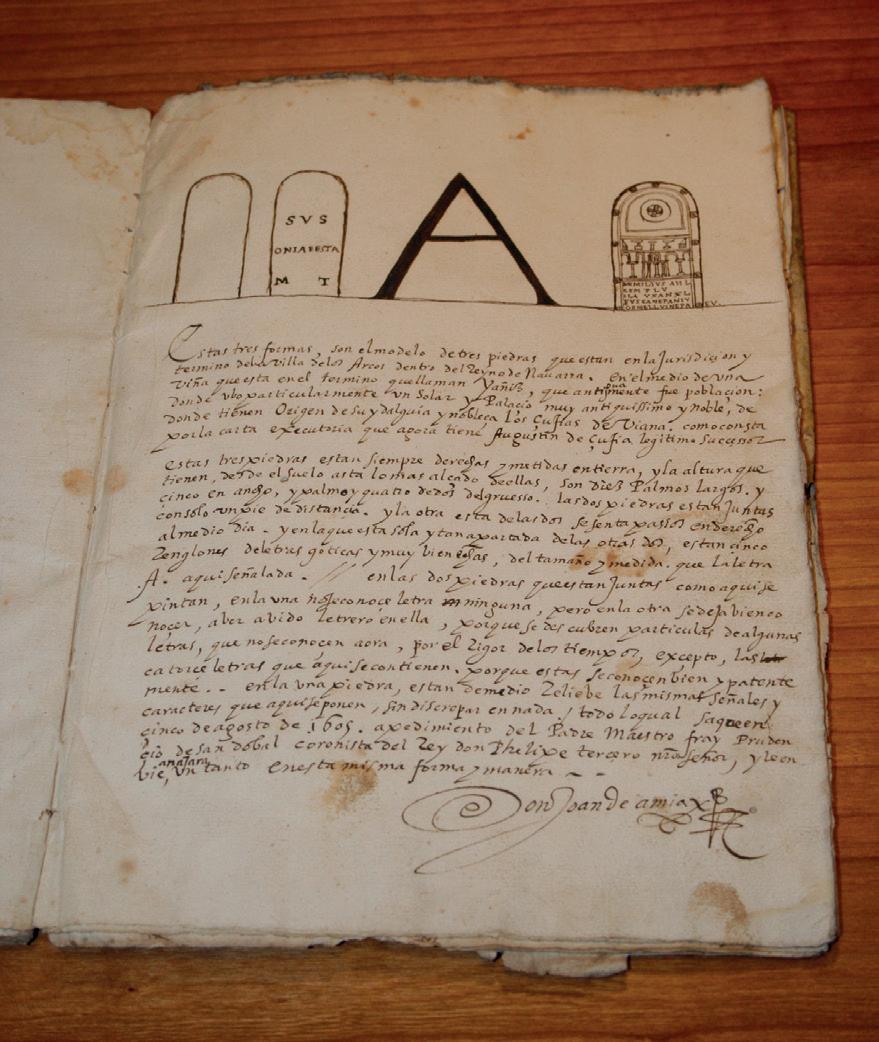 SVS
ONIABESTA
M T
A
Estas tres formas, son el modelo de tres piedras que estan en la Jurisdicion y
termino dela Villa delos Arcos dentro del Reyno de Navarra. En el medio de vna
viña que esta en el termino que llaman Yániz, que antiguamente fue poblacion:
donde vbo particularmente vn Solar y Palacio muy antiquissimo y noble, de
donde tienen Origen de su ydalguia y nobleca los Cuñas de Viana. como consta
por la carta executoria que agora tiene Augustin de Çuñia legitimo Sucessor
estas tres piedras estan siempre derechas y metidas en tierra, y la altura que
tienen, desde el suelo asta lo mas alçado de ellas, son diez Palmos largos. y
cinco en ancho, y palmo y quatro dedos del gruesso. las dos piedras estan Juntas
con solo vn pie de distancia. y la otra esta de las dos sesenta passos en derecho
al medio dia. y en la que esta sola y tan apartada de las otras dos, estan cinco
Renglones de letras goticas y muy bien echas, del tamaño y medida. que la letra
A. aqui señalada. // en las dos piedras que estan Juntas como aqui se
pintan, en la vna no se conoce letra ninguna, pero en la otra se deja bien co
nocer, aber abido letrero en ella, porque se descubren particulas de algunas
letras, que no se conocen aora, por el Rigor de los tiempos, excepto, las
catorce letras que aqui se contienen. porque estas se conocen bien y patente
mente. . en la vna piedra, estan de medio Relieve las mismas señales y
caracteres que aqui se ponen, sin discrepar en nada / todo lo qual saque en
cinco de agosto de 1605. a pedimiento del Padre Maestro fray Pruden
cio de San dobal coronista del Rey don Phelipe tercero nro señor, y le en
vie, a najara Vn tanto en esta misma forma y manera
Don Joan de amiax